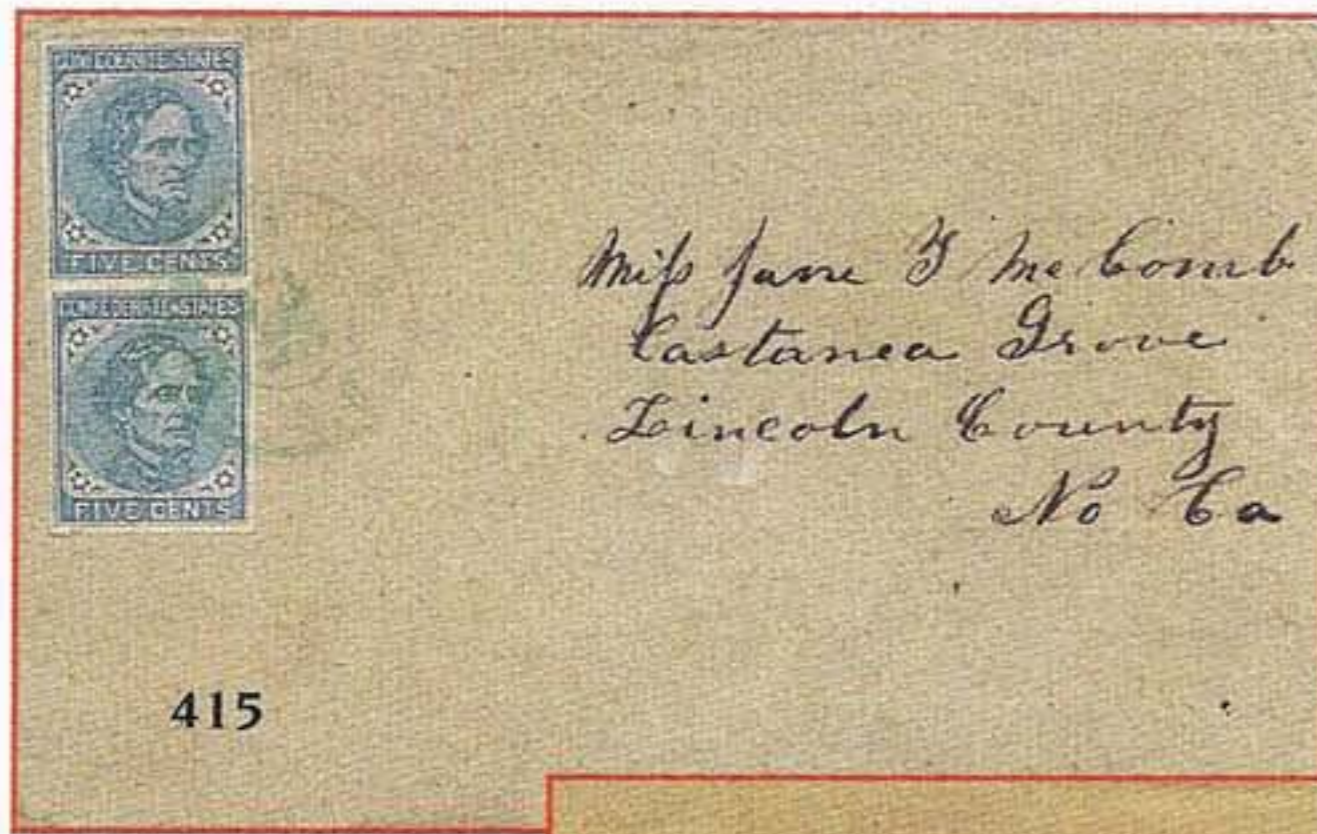 CONFEDERATE STATES
FIVE CENTS
CONFEDERATE STATES
FIVE CENTS
Miſs Jane Y Mc Comb
Castanea Grove
Lincoln County
No Ca
415